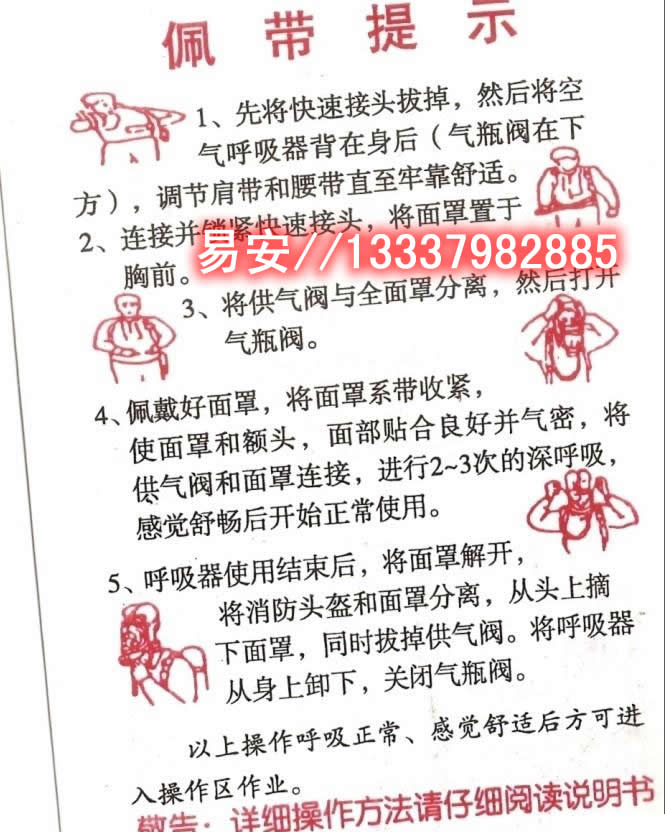 佩带提示
1、先将快速接头拔掉，然后将空
气呼吸器背在身后（气瓶阀在下
方），调节肩带和腰带直至牢靠舒适。
2、连接并锁紧快速接头，将面罩置于
易安//13337982885
胸前。
3、将供气阀与全面罩分离，然后打开
气瓶阀。
4、佩戴好面罩，将面罩系带收紧，
使面罩和额头，面部贴合良好并气密，将
供气阀和面罩连接，进行2~3次的深呼吸，
感觉舒畅后开始正常使用。
5、呼吸器使用结束后，将面罩解开，
将消防头盔和面罩分离，从头上摘
下面罩，同时拔掉供气阀。将呼吸器
从身上卸下，关闭气瓶阀。
以上操作呼吸正常、感觉舒适后方可进
入操作区作业。
敬告：详细操作方法请仔细阅读说明书